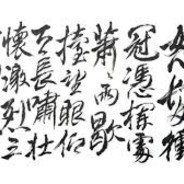 怒髮衝
冠憑欄處
瀟〻雨歇
擡望眼仰
天長嘯壯
懷激烈三